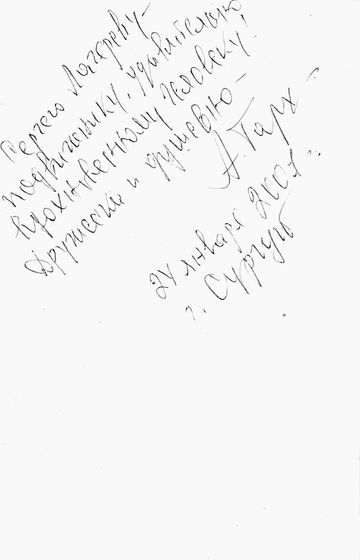 Сергею Лагереву –
подвижнику, удивительно
вдохновенному человеку.
Дружески и душевно –
А. Тарх
24 января 200
г. Сургут